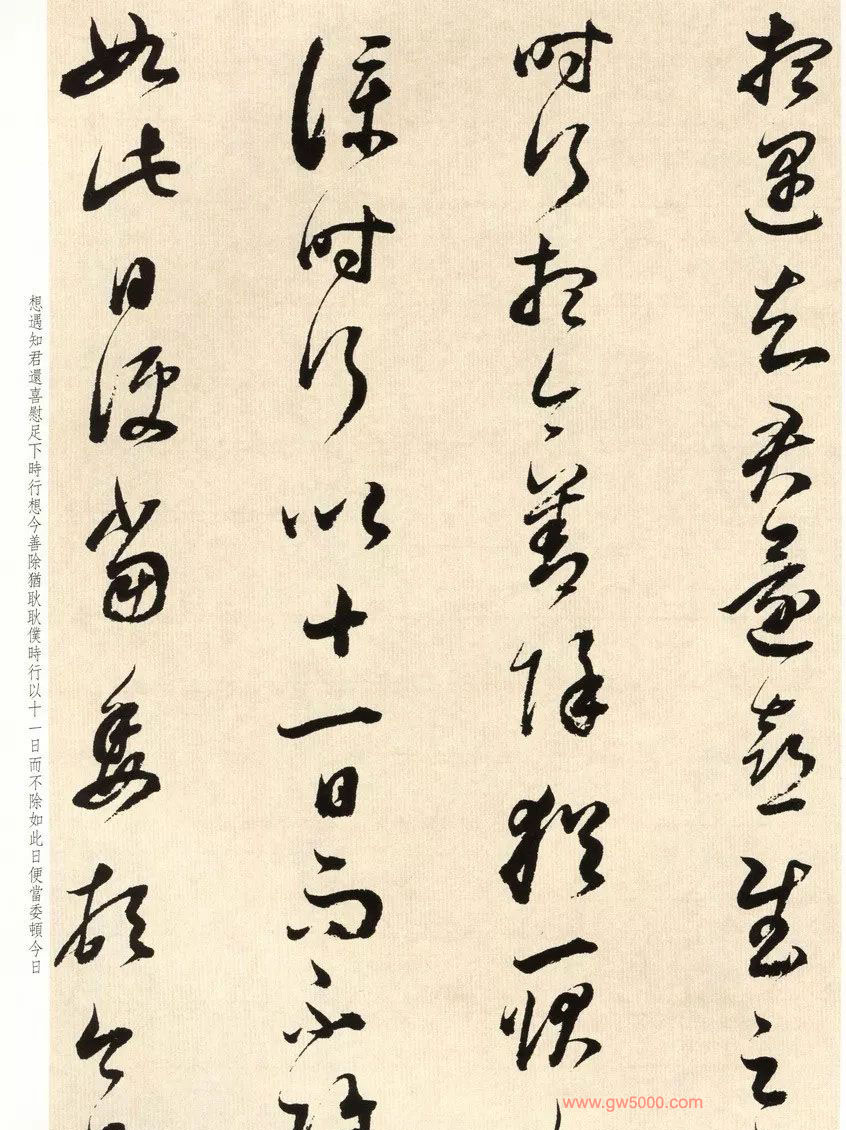 想遇知君還喜
時行想今善除猶
僕時行以十一日而不除
如此日便當委頓今
想遇知君還喜慰足下時行想今善除猶耿耿僕時行以十一日而不除如此日便當委頓今日
www.gw5000.com